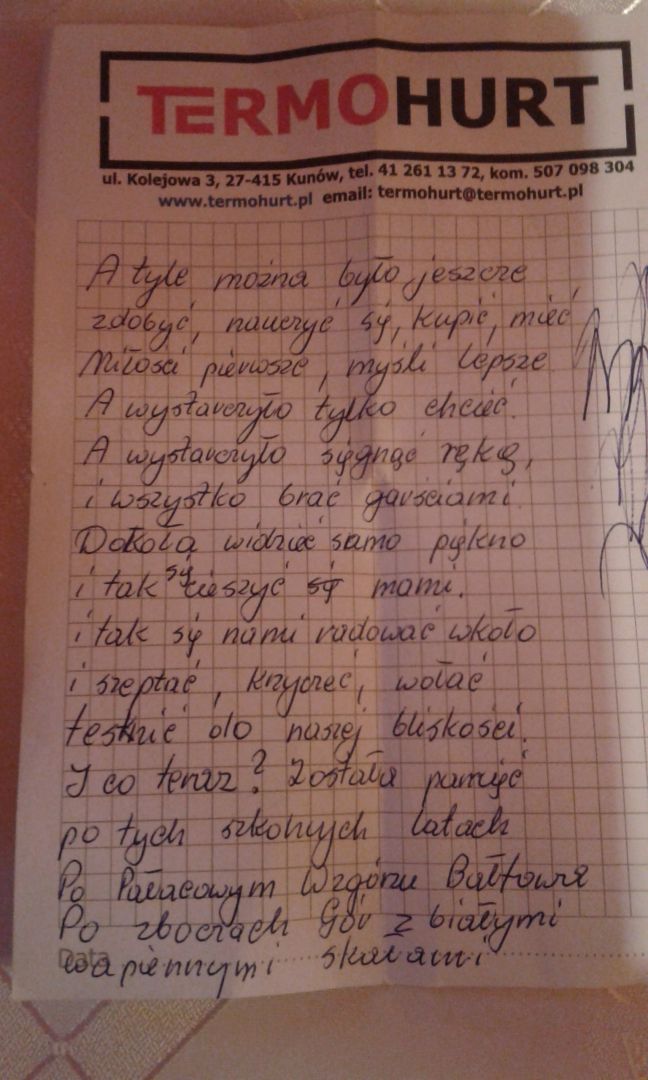 TERMOHURT
ul. Kolejowa 3, 27-415 Kunów, tel. 41 261 13 72, kom. 507 098 304
www.termohurt.pl email: termohurt@termohurt.pl
A tyle można było jeszcze
zdobyć, nauczyć się, kupić, mieć
Miłości pierwsze, myśli lepsze
A wystarczyło tylko chcieć.
A wystarczyło sięgnąć ręką,
i wszystko brać garściami
Dokoła widzieć samo piękno
i tak się cieszyć nami.
i tak się nami radować wkoło
i szeptać, krzyczeć, wołać
tęsknić do naszej bliskości.
I co teraz? Została pamięć
po tych szkolnych latach
Po Pałacowym Wzgórzu Bałtowa
Po zboczach Gór z białymi
wapiennymi skałami
Data